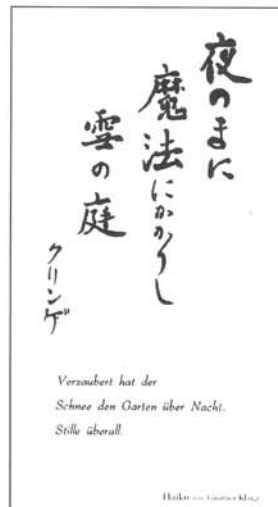 夜のまに
魔法にかかりし
雪の庭
クリンゲ
Verzaubert hat der
Schnee den Garten über Nacht.
Stille überall.
Haiku von